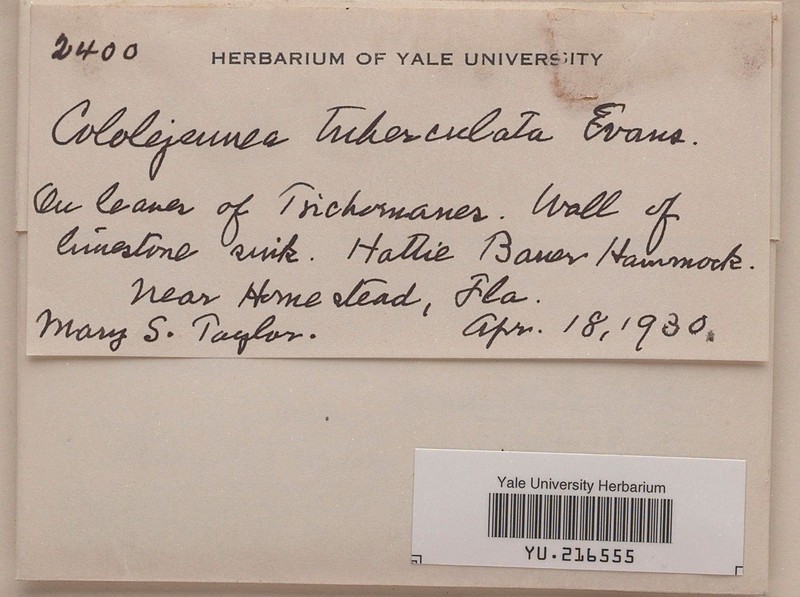 2400
HERBARIUM OF YALE UNIVERSITY
Cololejeunea tuberculata Evans.
On leaves of Trichomanes. Wall of
limestone sink. Hattie Bauer Hammock.
Near Homestead, Fla.
Mary S. Taylor. Apr. 18, 1930.
Yale University Herbarium
YU.216555